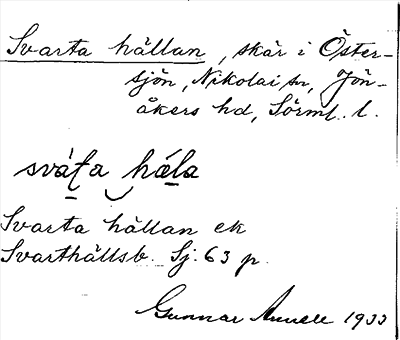 Svarta hällan, skär i Öster-
sjön, Nikolai sn, Jön-
åkers hd, Sörml. l.
Svarta hällan ek
Svarthällsb. Sj. 63 p.
Gunnar 1933